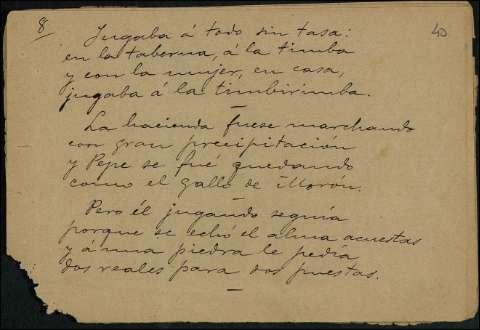 8
40
Jugaba á todo sin tasa:
en la taberna, á la timba
y con la mujer, en casa,
jugaba á la timbirimba.
La hacienda fuese marchando
con gran precipitación
y Pepe se fué quedando
como el gallo de Morón.
Pero él jugando seguía
porque se echó el alma acuestas
y á una piedra le pedía
dos reales para dos puestas.